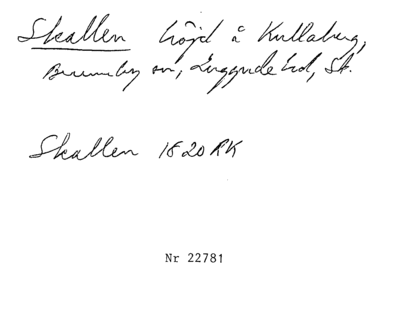 Skallen höjd å Kullaberg,
Brunnby sn, Luggude hd, Sk.
Skallen 1820 RK
Nr 22781